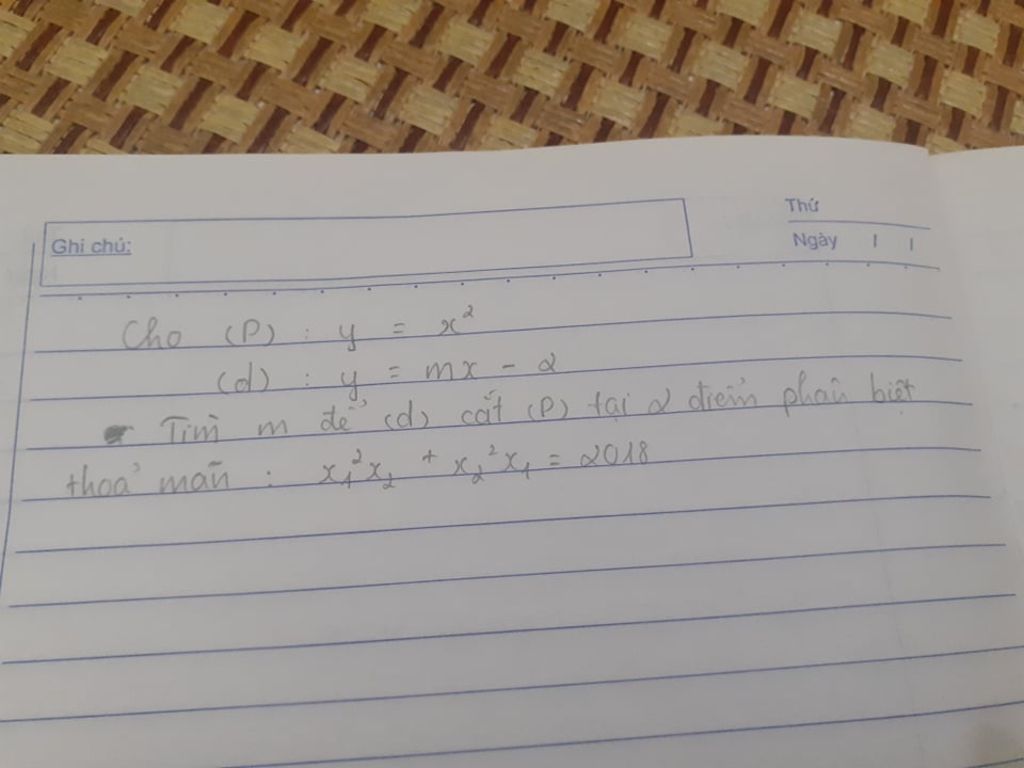 Thứ
Ghi chú:
Ngày / /
Cho (P) : y = x²
(d) : y = mx - 2
Tìm m để (d) cắt (P) tại 2 điểm phân biệt
thoả mãn : x₁²x₂ + x₂²x₁ = 2018